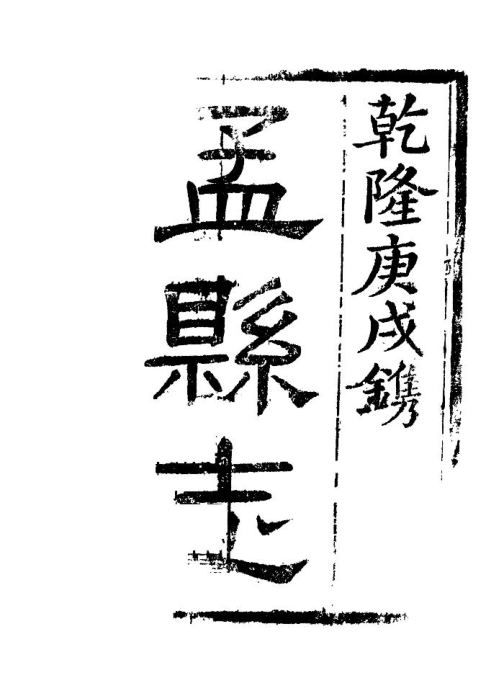 乾隆庚戌鐫
孟縣志